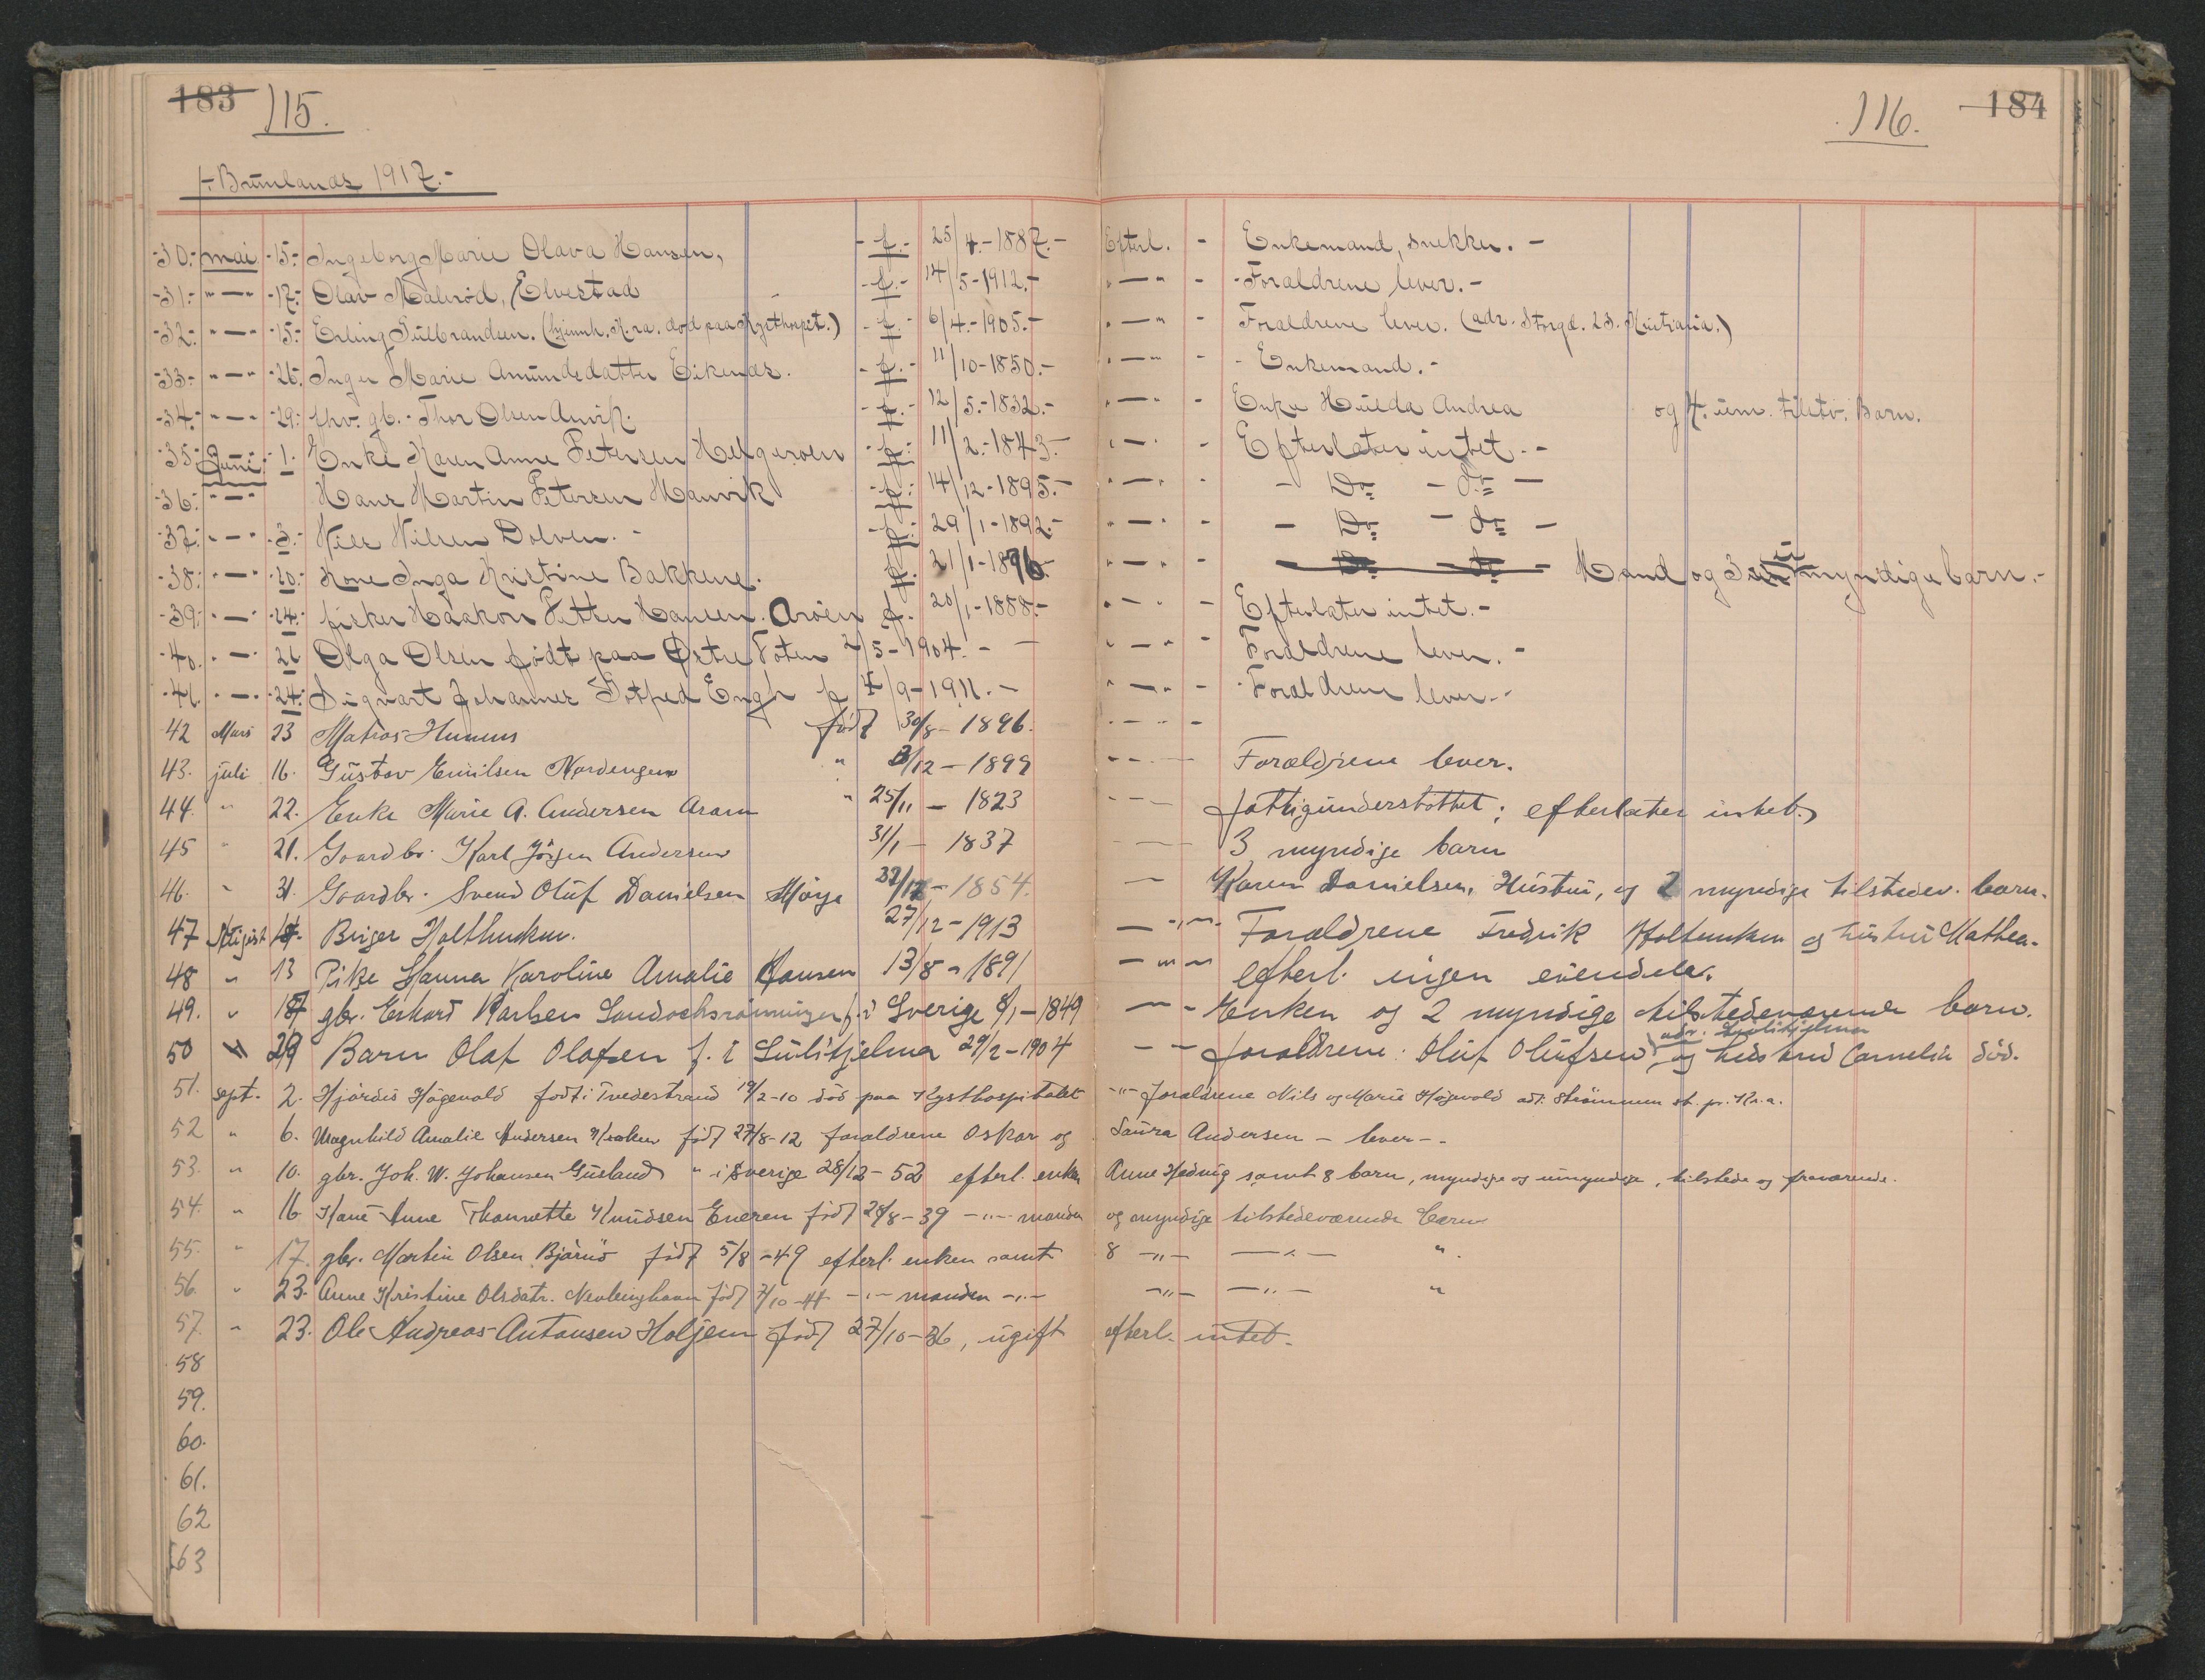 183 115. 116. 184
Brunlanäs 1917.-
-30.- mai -15.- Ingeborg Marie Olava Hansen, - f.- 25/4.-1887.- Efterl. - Enkemand, snekker. -
-31.- "—" -17.- Olav Målerød, Elvestad - f.- 14/5-1912.- "—" - -Foraldrene lever.-
-32.- "—" -15.- Erling Gulbrandsen. (hjemh. K.ra. död paa Kysthospit.) - f.- 6/4.-1905.- "—" - Foraldrene lever. (adr. Storgd. 23. Kristiania.)
-33.- "—" -26. Inger Marie Amundsdatter Eikenäs. - f.- 11/10-1850.- "—" - - Enkemand.-
-34.- "—" -29.- fhv. gb. - Thor Olsen Anvik. - f.- 12/5.-1832.- "—" - Enke Hulda Andrea og 4. um. tilstv. Barn.
-35.- Juni -1.- Enke Karen Anne Petersen Helgeroen - f.- 11/2.-1843.- "—" - Efterlater intet.-
-36.- "—" Hans Martin Petersen Manvik - f.- 14/12-1895.- "—" - - Do - do -
-37.- "—" -3.- Niels Nilsen Dolven.- - f.- 29/1-1892.- "—" - - Do - do -
-38.- "—" -20.- Kone Inga Kristine Bakkene. f. 21/1-1896.- "—" - Do do - Mand og 3 umyndige barn.-
-39.- "—" -24.- fisker Haakon Petter Hansen. Aröen f. 20/1-1888.- "—" - Efterlater intet.-
-40. "—" 21 Olga Olsen født paa Østre Toten 2/5-1904.- - "—" - Foraldrene lever.-
-41. "—" -24.- Sigvart Johannes Gotfred Engh f 4/9-1911.- "—" - -Foraldrene lever.-
42 Mars 23 Matias Hummes född 30/8-1896. "—" -
43. juli 16. Gustav Emilsen Nordengen " 3/12-1899 Foraldrene lever.
44. " 22. Enke Marie A. Andersen Aram " 25/11-1823 fattigunderstöttet; efterlater intet.
45 " 21. Gaardbr. Karl Jörgen Andersen 31/1-1837 3 myndige barn
46. " 31. Gaardbr. Svend Oluf Danielsen Mørje /12-1854. Karen Danielsen, Hustru, og 2 myndige tilstedev. barn.
47 August Birger Holtlunken. 27/12-1913 -"- Foraldrene Fredrik Holtunken og hustru Mathea.
48 " 13 Pike Hanna Karoline Amalie Hansen 13/8-1891 -"- efterl. ingen eiendele.
49. " 17 gbr. Erhard Karlsen Sandochsrönningen f. i Sverige 8/1-1849 - - Enken og 2 myndige tilstedeværende barn.
50 " 29 Barn Olaf Olafsen f. i Sulitjelma 29/2-1904 - - foraldrene: Oluf Olufsen adr. Sulitjelma og hustru Cornelia död.
51. sept. 2. Hjördis Högevold född i Tvedestrand 19/2-10 död paa Kysthospitalet -"- foraldrene Nils og Marie Högevold adr. Strömmen st. pr. Kr.a.
52 " 6. Magnhild Amalie Andersen Kroken född 27/8-12 foraldrene Oskar og Laura Andersen - lever-.
53. " 10. gbr. Joh. W. Johansen Gusland " i Sverige 28/12-52 efterl. enken Anne Hedvig samt 8 barn, myndige og umyndige, tilstede og fraværende.
54. " 16 Kone Anne Thomette Knudsen Eneren född 28/8-39 -"- manden og myndige tilstedeværende barn
55. " 17. gbr. Martin Olsen Bjärnö född 5/8-49 efterl. enken samt 8 -"- -"- "
56. " 23. Anne Kristine Olsdatr. Nevlunghavn född 7/10-44 -"- manden -"- -"- -"- "
57. " 23. Ole Andreas Antonsen Holjem född 27/10-36, ugift efterl. intet.
58
59.
60.
61.
62
63